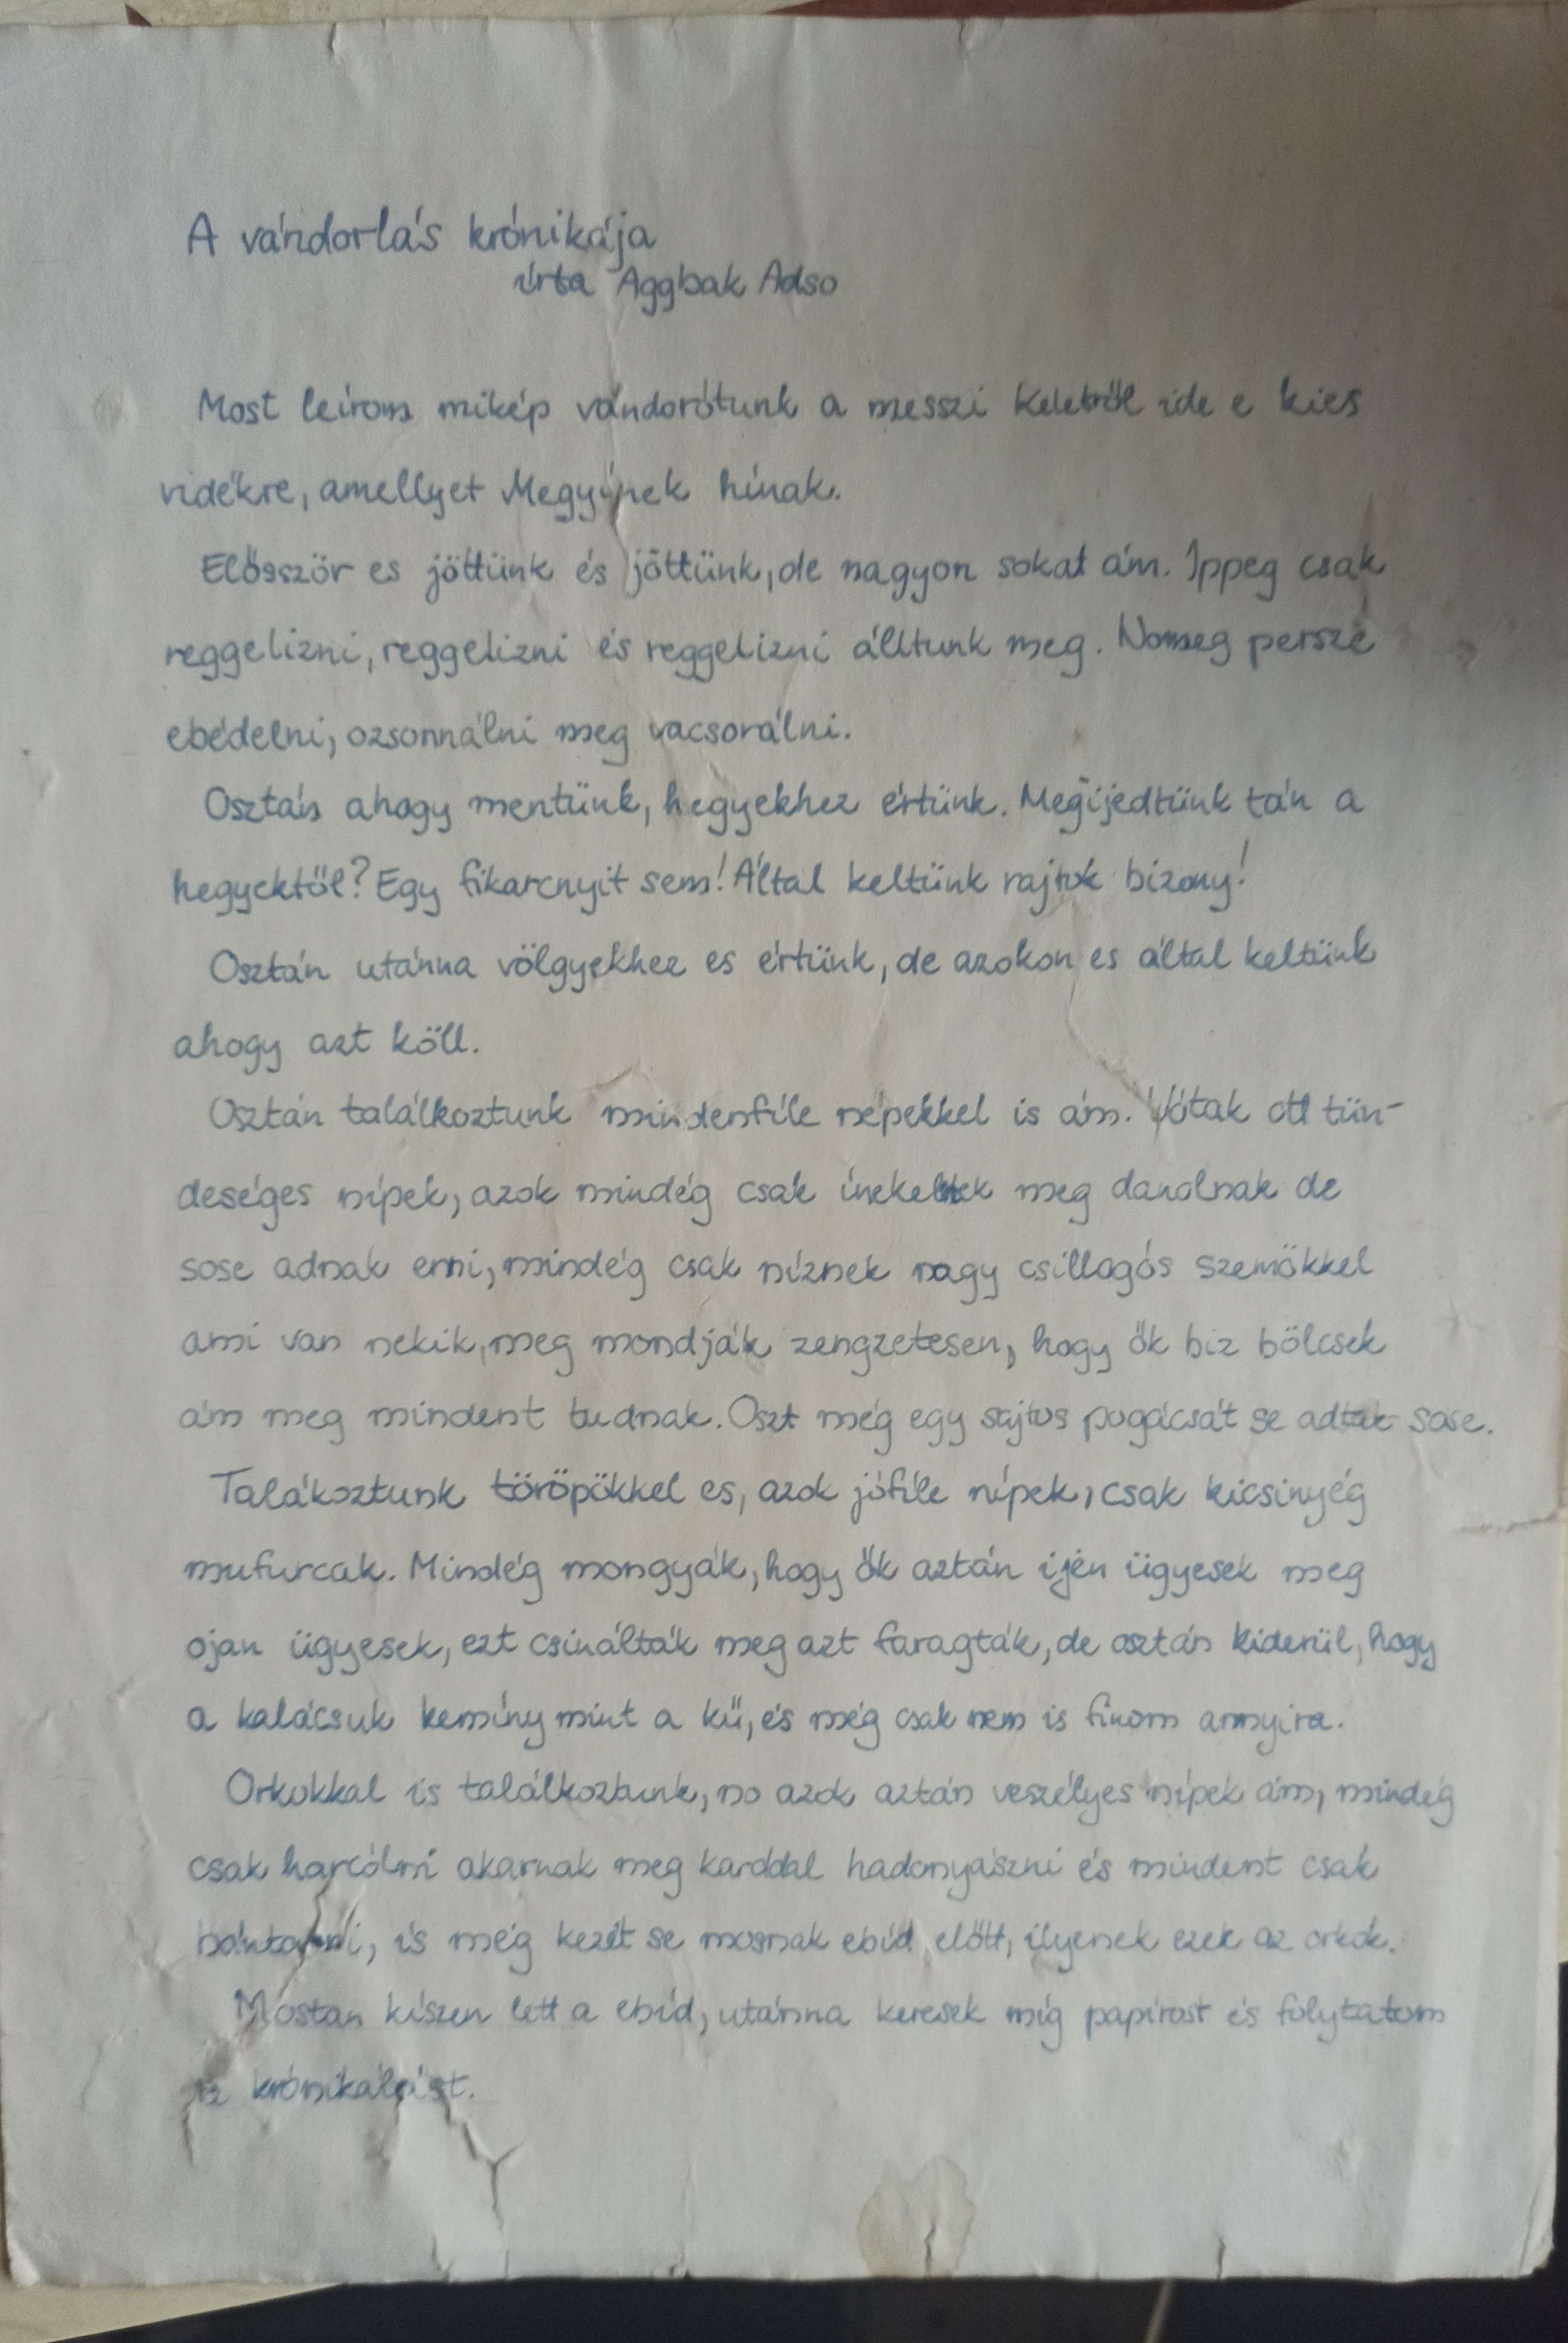 A vándorlás krónikája
írta Aggbak Adso
Most leírom mikép vándorótunk a messzi Keletről ide e kies
vidékre, amellyet Megyínek hínak.
Elősször es jöttünk és jöttünk, de nagyon sokat ám. Ippeg csak
reggelizni, reggelizni és reggelizni álltunk meg. Nomeg persze
ebédelni, ozsonnálni meg vacsorálni.
Osztán ahogy mentünk, hegyekhez értünk. Megijedtünk tán a
hegyektől? Egy fikarcnyit sem! Által keltünk rajtok bizony!
Osztán utánna völgyekhez es értünk, de azokon es által keltünk
ahogy azt köll.
Osztán találkoztunk mindenfíle népekkel is ám. Vótak ott tün-
deséges nípek, azok mindég csak ínekelnek meg danolnak de
sose adnak enni, mindég csak níznek nagy csillogós szemökkel
ami van nekik, meg mondják zengzetesen, hogy ők biz bölcsek
ám meg mindent tudnak. Oszt még egy sajtos pogácsát se adtak sose.
Talákoztunk töröpökkel es, azok jófíle nípek, csak kicsinyég
mufurcak. Mindég mongyák, hogy ők aztán ijen ügyesek meg
ojan ügyesek, ezt csinálták meg azt faragták, de osztán kiderül, hogy
a kalácsuk kemíny mint a kű, és még csak nem is finom annyira.
Orkokkal is találkoztunk, no azok aztán veszélyes nípek ám, mindég
csak harcólni akarnak meg karddal hadonyászni és mindent csak
bántani, is még kezít se mosnak ebíd előtt, ilyenek ezek az orkok.
Mostan kíszen lett a ebíd, utánna keresek míg papírost és folytatom
krónikálást.